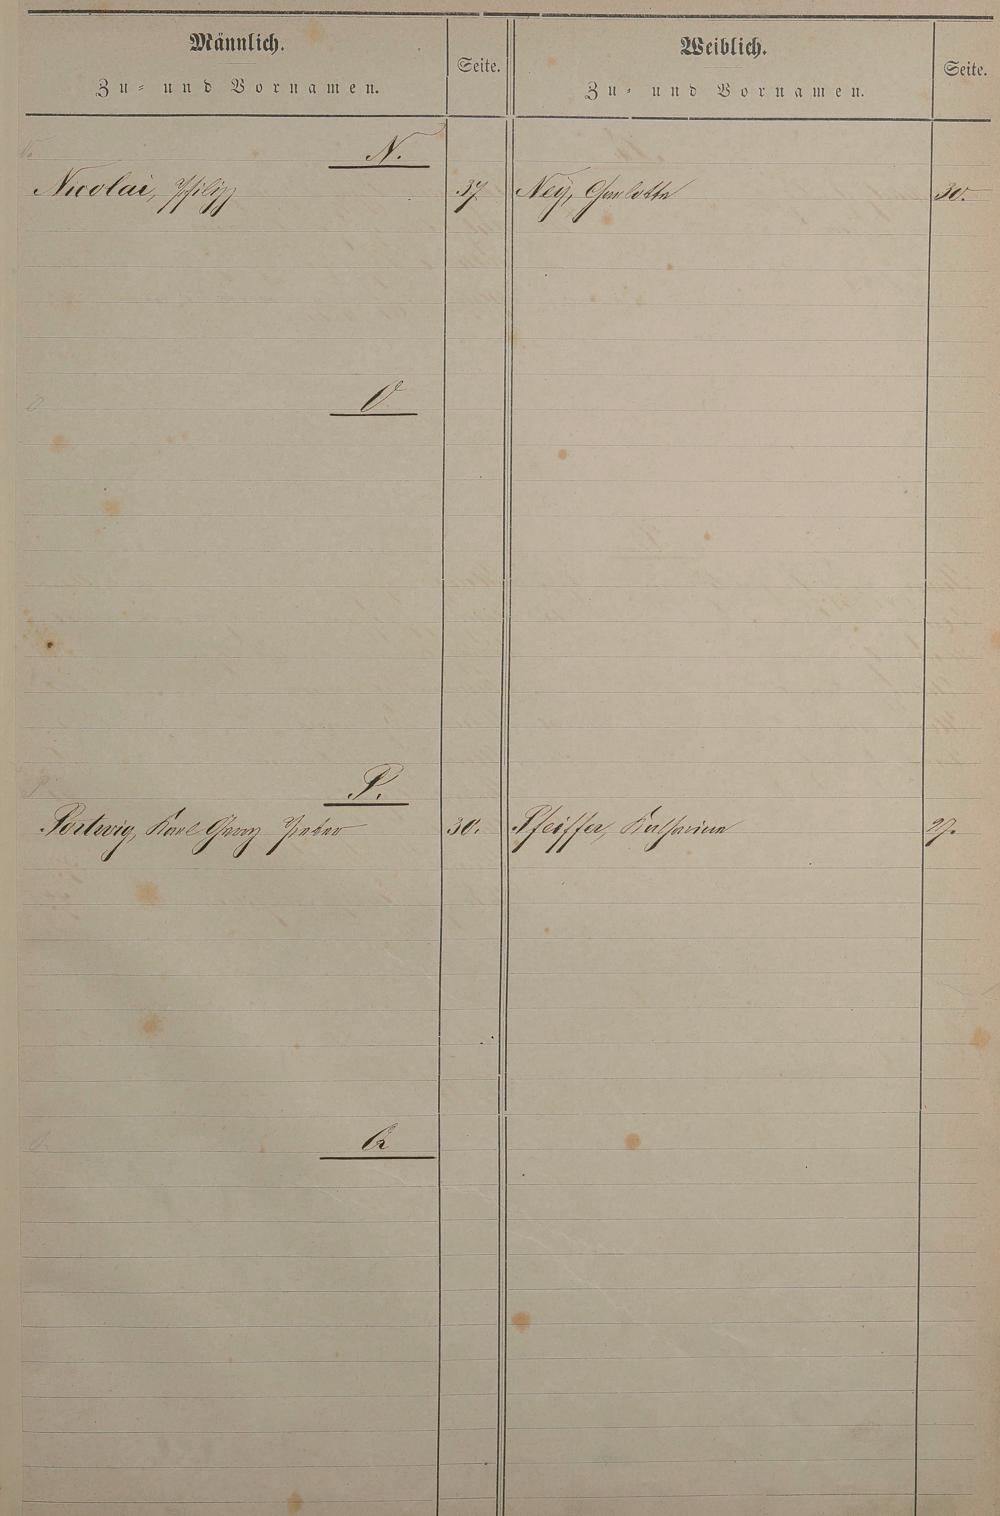 Männlich.
Zu- und Vornamen.
Seite.
Weiblich.
Zu- und Vornamen.
Seite.
N.
Nicolai, Philipp 37. Ney, Charlotte 30.
O
P.
Portwig, Karl Georg Peter 30. Pfeiffer, Katharina 27.
Q